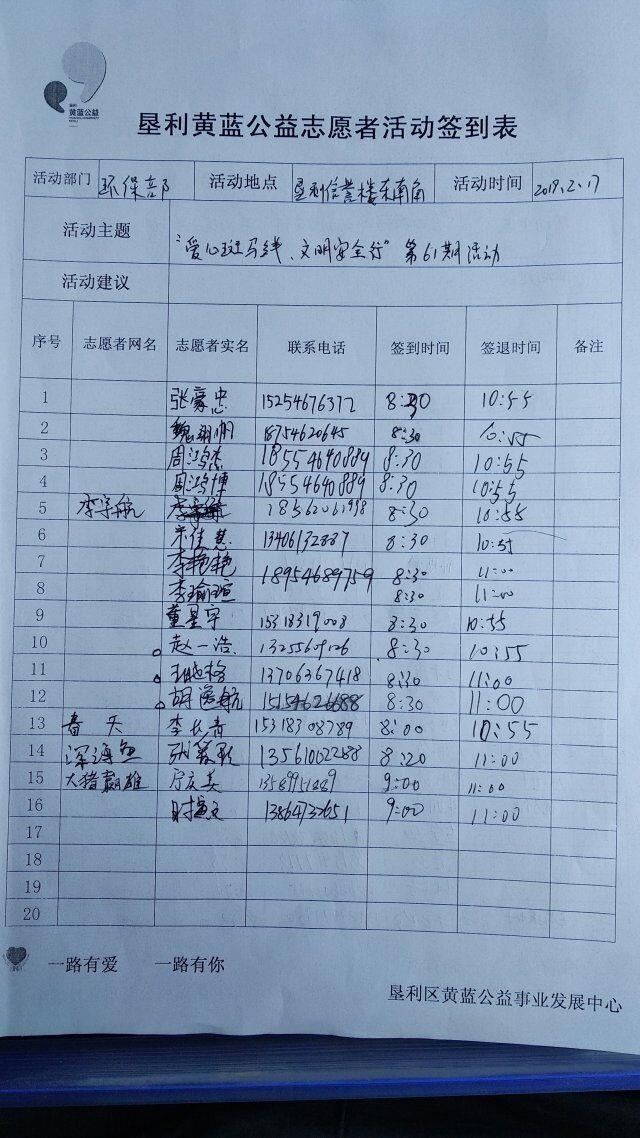 垦利
黄蓝公益
垦利黄蓝公益志愿者活动签到表
活动部门 环保部 活动地点 垦利信誉楼东南角 活动时间 2019.2.17
活动主题 “爱心斑马线、文明安全行”第61期活动
活动建议
序号 志愿者网名 志愿者实名 联系电话 签到时间 签退时间 备注
1 张豪忠 15254676372 8:30 10:55
2 魏 18754620645 8:30 10:55
3 周鸿杰 18554640889 8:30 10:55
4 周鸿博 18554640889 8:30 10:55
5 李宇航 18562061998 8:30 10:55
6 宋佳慧 13406132887 8:30 10:55
7 李艳艳 18954689759 8:30 11:00
8 李瑜瑄 8:30 11:00
9 董星宇 15318319008 8:30 10:55
10 赵一浩 8:30 10:55
11 13706367418 8:30 11:00
12 胡 航 8:30 11:00
13 春天 李长青 15318308789 8:00 10:55
14 深海鱼 张 13561002288 8:20 11:00
15 大猪赢雄 9:00 11:00
16 9:00 11:00
17
18
19
20
一路有爱 一路有你
垦利区黄蓝公益事业发展中心